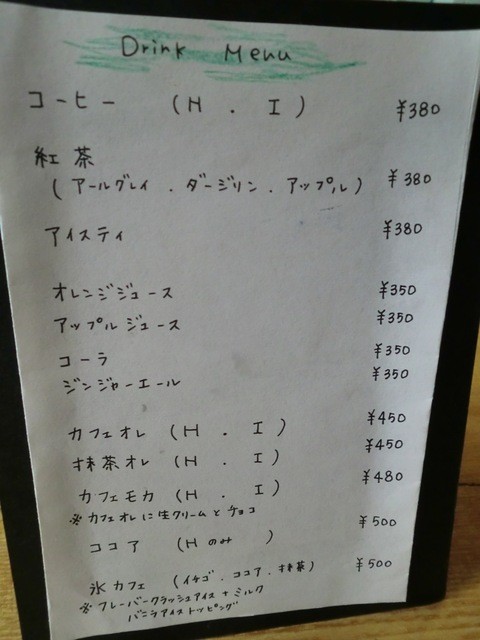 Drink Menu
コーヒー (H . I) ¥380
紅茶
(アールグレイ . ダージリン . アップル) ¥380
アイスティ ¥380
オレンジジュース ¥350
アップルジュース ¥350
コーラ ¥350
ジンジャーエール ¥350
カフェオレ (H . I) ¥450
抹茶オレ (H . I) ¥450
カフェモカ (H . I) ¥480
※カフェオレに生クリームとチョコ
ココア (Hのみ) ¥500
氷カフェ (イチゴ . ココア . 抹茶) ¥500
※フレーバークラッシュアイス+ミルク
バニラアイストッピング